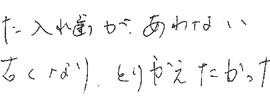 た入れ歯が、あわない
古くなり、とりかえたかった